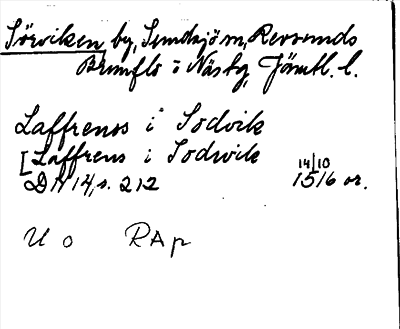 Sörviken by, Sundsjö sn, Revsunds
Brunflo o Näskg, Jämtl. l.
Laffrenss i Sodvik
[Laffrens i Sodwik
DH 14, s. 212 14/10 1516 or.
U o RAp